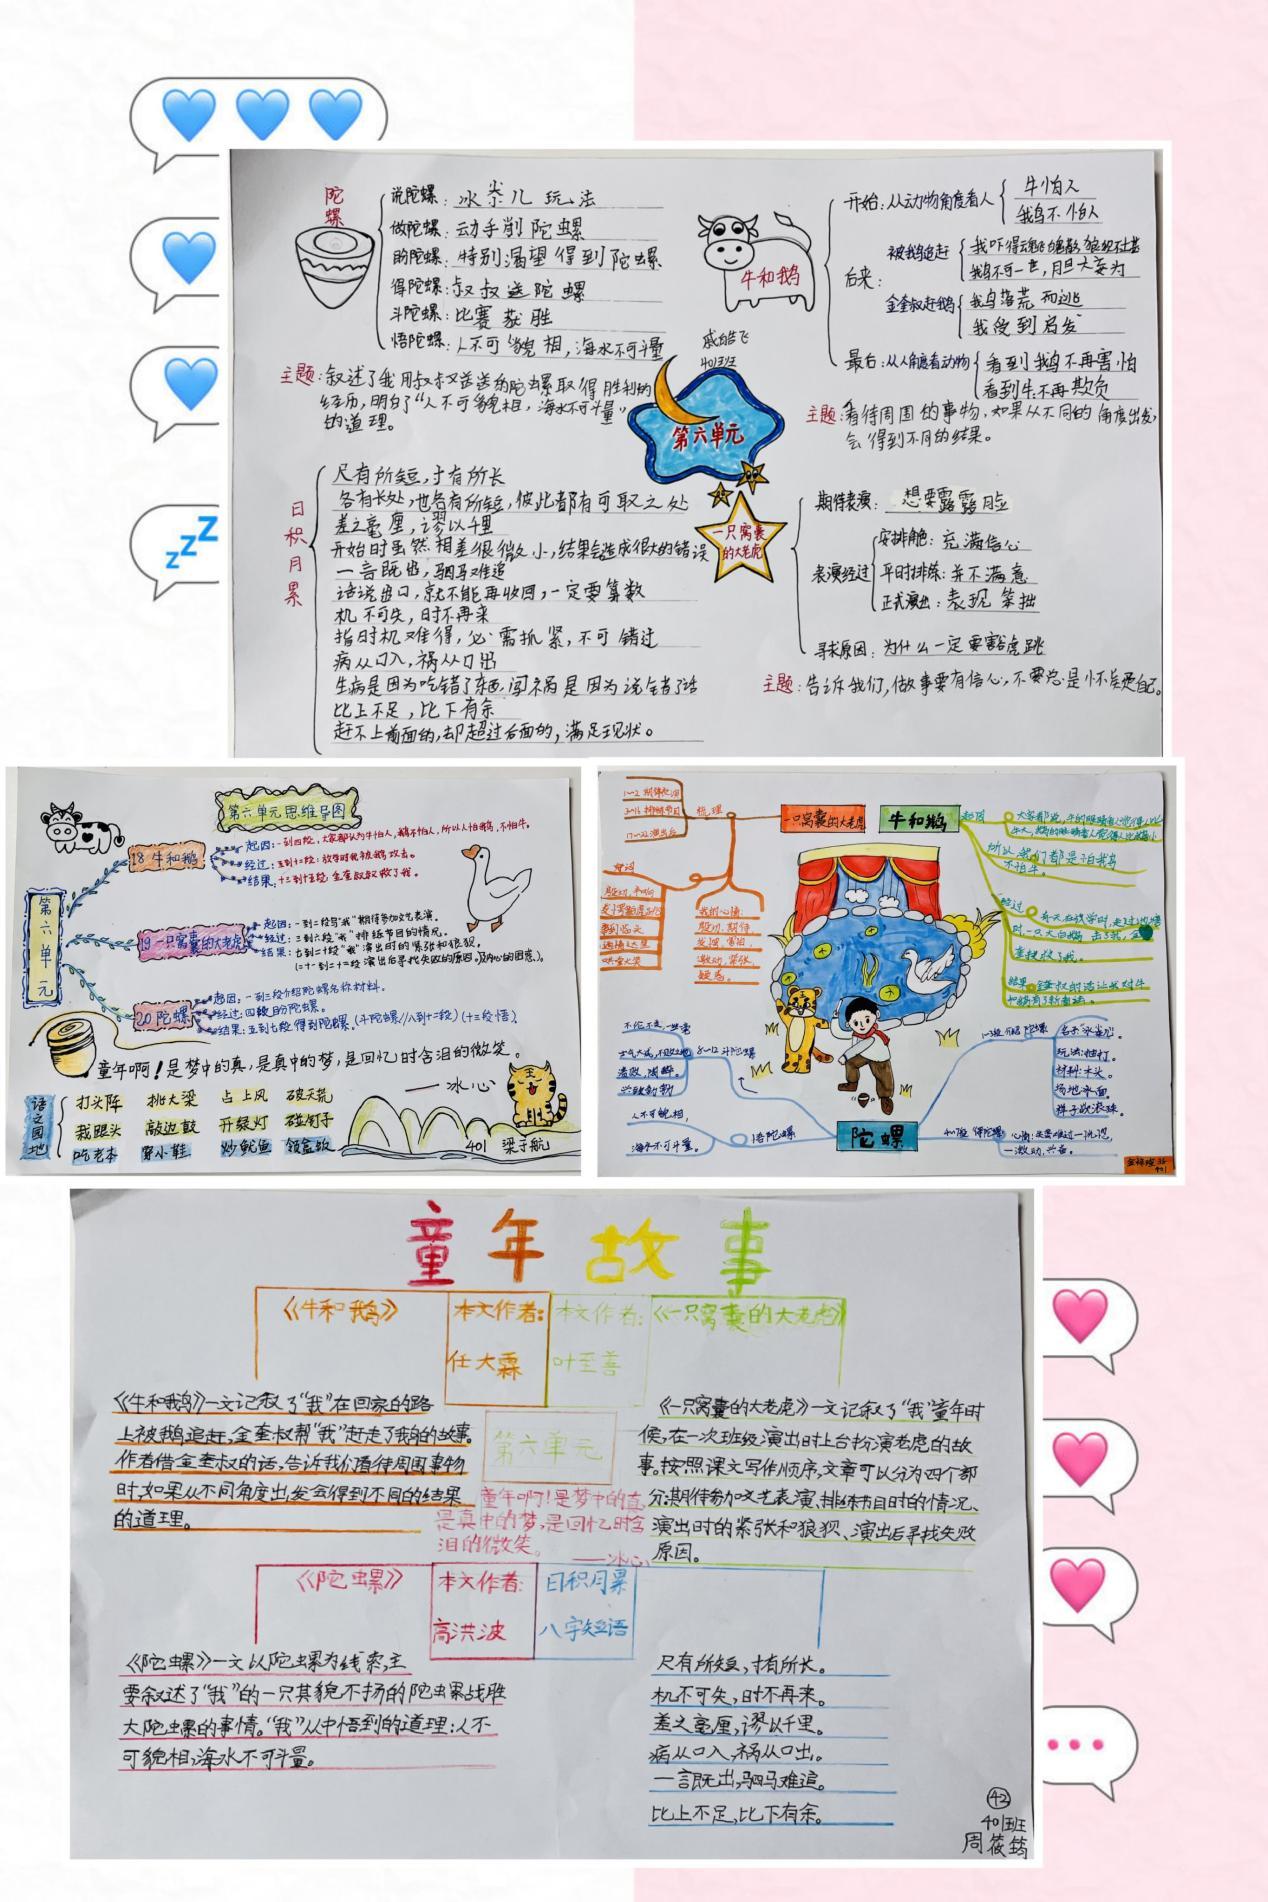 陀
螺
说陀螺：冰尜儿 玩法
做陀螺：动手削陀螺
盼陀螺：特别渴望得到陀螺
得陀螺：叔叔送陀螺
斗陀螺：比赛获胜
悟陀螺：人不可貌相，海水不可斗量
主题：叙述了我用叔叔送的陀螺取得胜利的
经历，明白了“人不可貌相，海水不可斗量”
的道理。
牛和鹅
开始：从动物角度看人
牛怕人
鹅不怕人
后来：
被鹅追赶
我吓得魂飞魄散，狼狈不堪
鹅不可一世，胆大妄为
金奎叔赶鹅
鹅落荒而逃
我受到启发
最后：从人角度看动物
看到鹅不再害怕
看到牛不再欺负
主题：看待周围的事物，如果从不同的角度出发，
会得到不同的结果。
戚皓飞
401班
第六单元
日积月累
尺有所短，寸有所长
各有长处，也各有所短，彼此都有可取之处
差之毫厘，谬以千里
开始时虽然相差很微小，结果会造成很大的错误
一言既出，驷马难追
话说出口，就不能再收回，一定要算数
机不可失，时不再来
指时机难得，必需抓紧，不可错过
病从口入，祸从口出
生病是因为吃错了东西，闯祸是因为说错了话
比上不足，比下有余
赶不上前面的，却超过后面的，满足现状。
一只窝囊
的大老虎
期待表演：想要露露脸
表演经过
安排角色：充满信心
平时排练：并不满意
正式演出：表现笨拙
寻求原因：为什么一定要豁虎跳
主题：告诉我们，做事要有信心，不要总是怀疑自己。
第六单元思维导图
第六单元
18 牛和鹅
起因：一到四段，大家都认为牛怕人，鹅不怕人，所以人怕鹅，不怕牛。
经过：五到十二段：放学时我被鹅攻击。
结果：十三到十五段，金奎叔叔救了我。
19 一只窝囊的大老虎
起因：一到二段写“我”期待参加文艺表演。
经过：三到六段“我”排练节目的情况。
结果：七到二十段“我”演出时的紧张和狼狈。
(二十一到二十二段演出后寻找失败的原因及内心的困惑。)
20 陀螺
起因：一到三段介绍陀螺名称材料。
经过：四段盼陀螺。
结果：五到七段得到陀螺。(斗陀螺//八到十二段)(十三段悟)。
童年啊！是梦中的真，是真中的梦，是回忆时含泪的微笑。
——冰心
语文园地
打头阵 挑大梁 占上风 破天荒
栽跟头 敲边鼓 开绿灯 碰钉子
吃老本 穿小鞋 炒鱿鱼 领盒饭
401 梁子航
一只窝囊的大老虎
牛和鹅
梳理
我的心情：
殷切，期待
激动，紧张，
疑惑。
起因
所以我们都是怕鹅
不怕牛。
经过
陀螺
1-3段 介绍陀螺
名字“冰尜儿”。
玩法：抽打。
材料：木头。
场地：冰面。
8—12 斗陀螺
悟陀螺
人不可貌相，
海水不可斗量。
童年故事
《牛和鹅》
本文作者：
任大霖
本文作者：
叶至善
《一只窝囊的大老虎》
《牛和鹅》一文记叙了“我”在回家的路
上被鹅追赶，金奎叔帮“我”赶走了鹅的故事。
作者借金奎叔的话，告诉我们看待周围事物
时，如果从不同角度出发会得到不同的结果
的道理。
第六单元
童年啊！是梦中的真，
是真中的梦，是回忆时含
泪的微笑。
——冰心
《一只窝囊的大老虎》一文记叙了“我”童年时
候，在一次班级演出时上台扮演老虎的故
事。按照课文写作顺序，文章可以分为四个部
分：期待参加文艺表演、排练节目时的情况、
演出时的紧张和狼狈、演出后寻找失败
原因。
《陀螺》
本文作者：
高洪波
日积月累
八字短语
《陀螺》一文以陀螺为线索，主
要叙述了“我”的一只其貌不扬的陀螺战胜
大陀螺的事情。“我”从中悟到的道理：人不
可貌相，海水不可斗量。
尺有所短，寸有所长。
机不可失，时不再来。
差之毫厘，谬以千里。
病从口入，祸从口出。
一言既出，驷马难追。
比上不足，比下有余。
42
401班
周筱筠